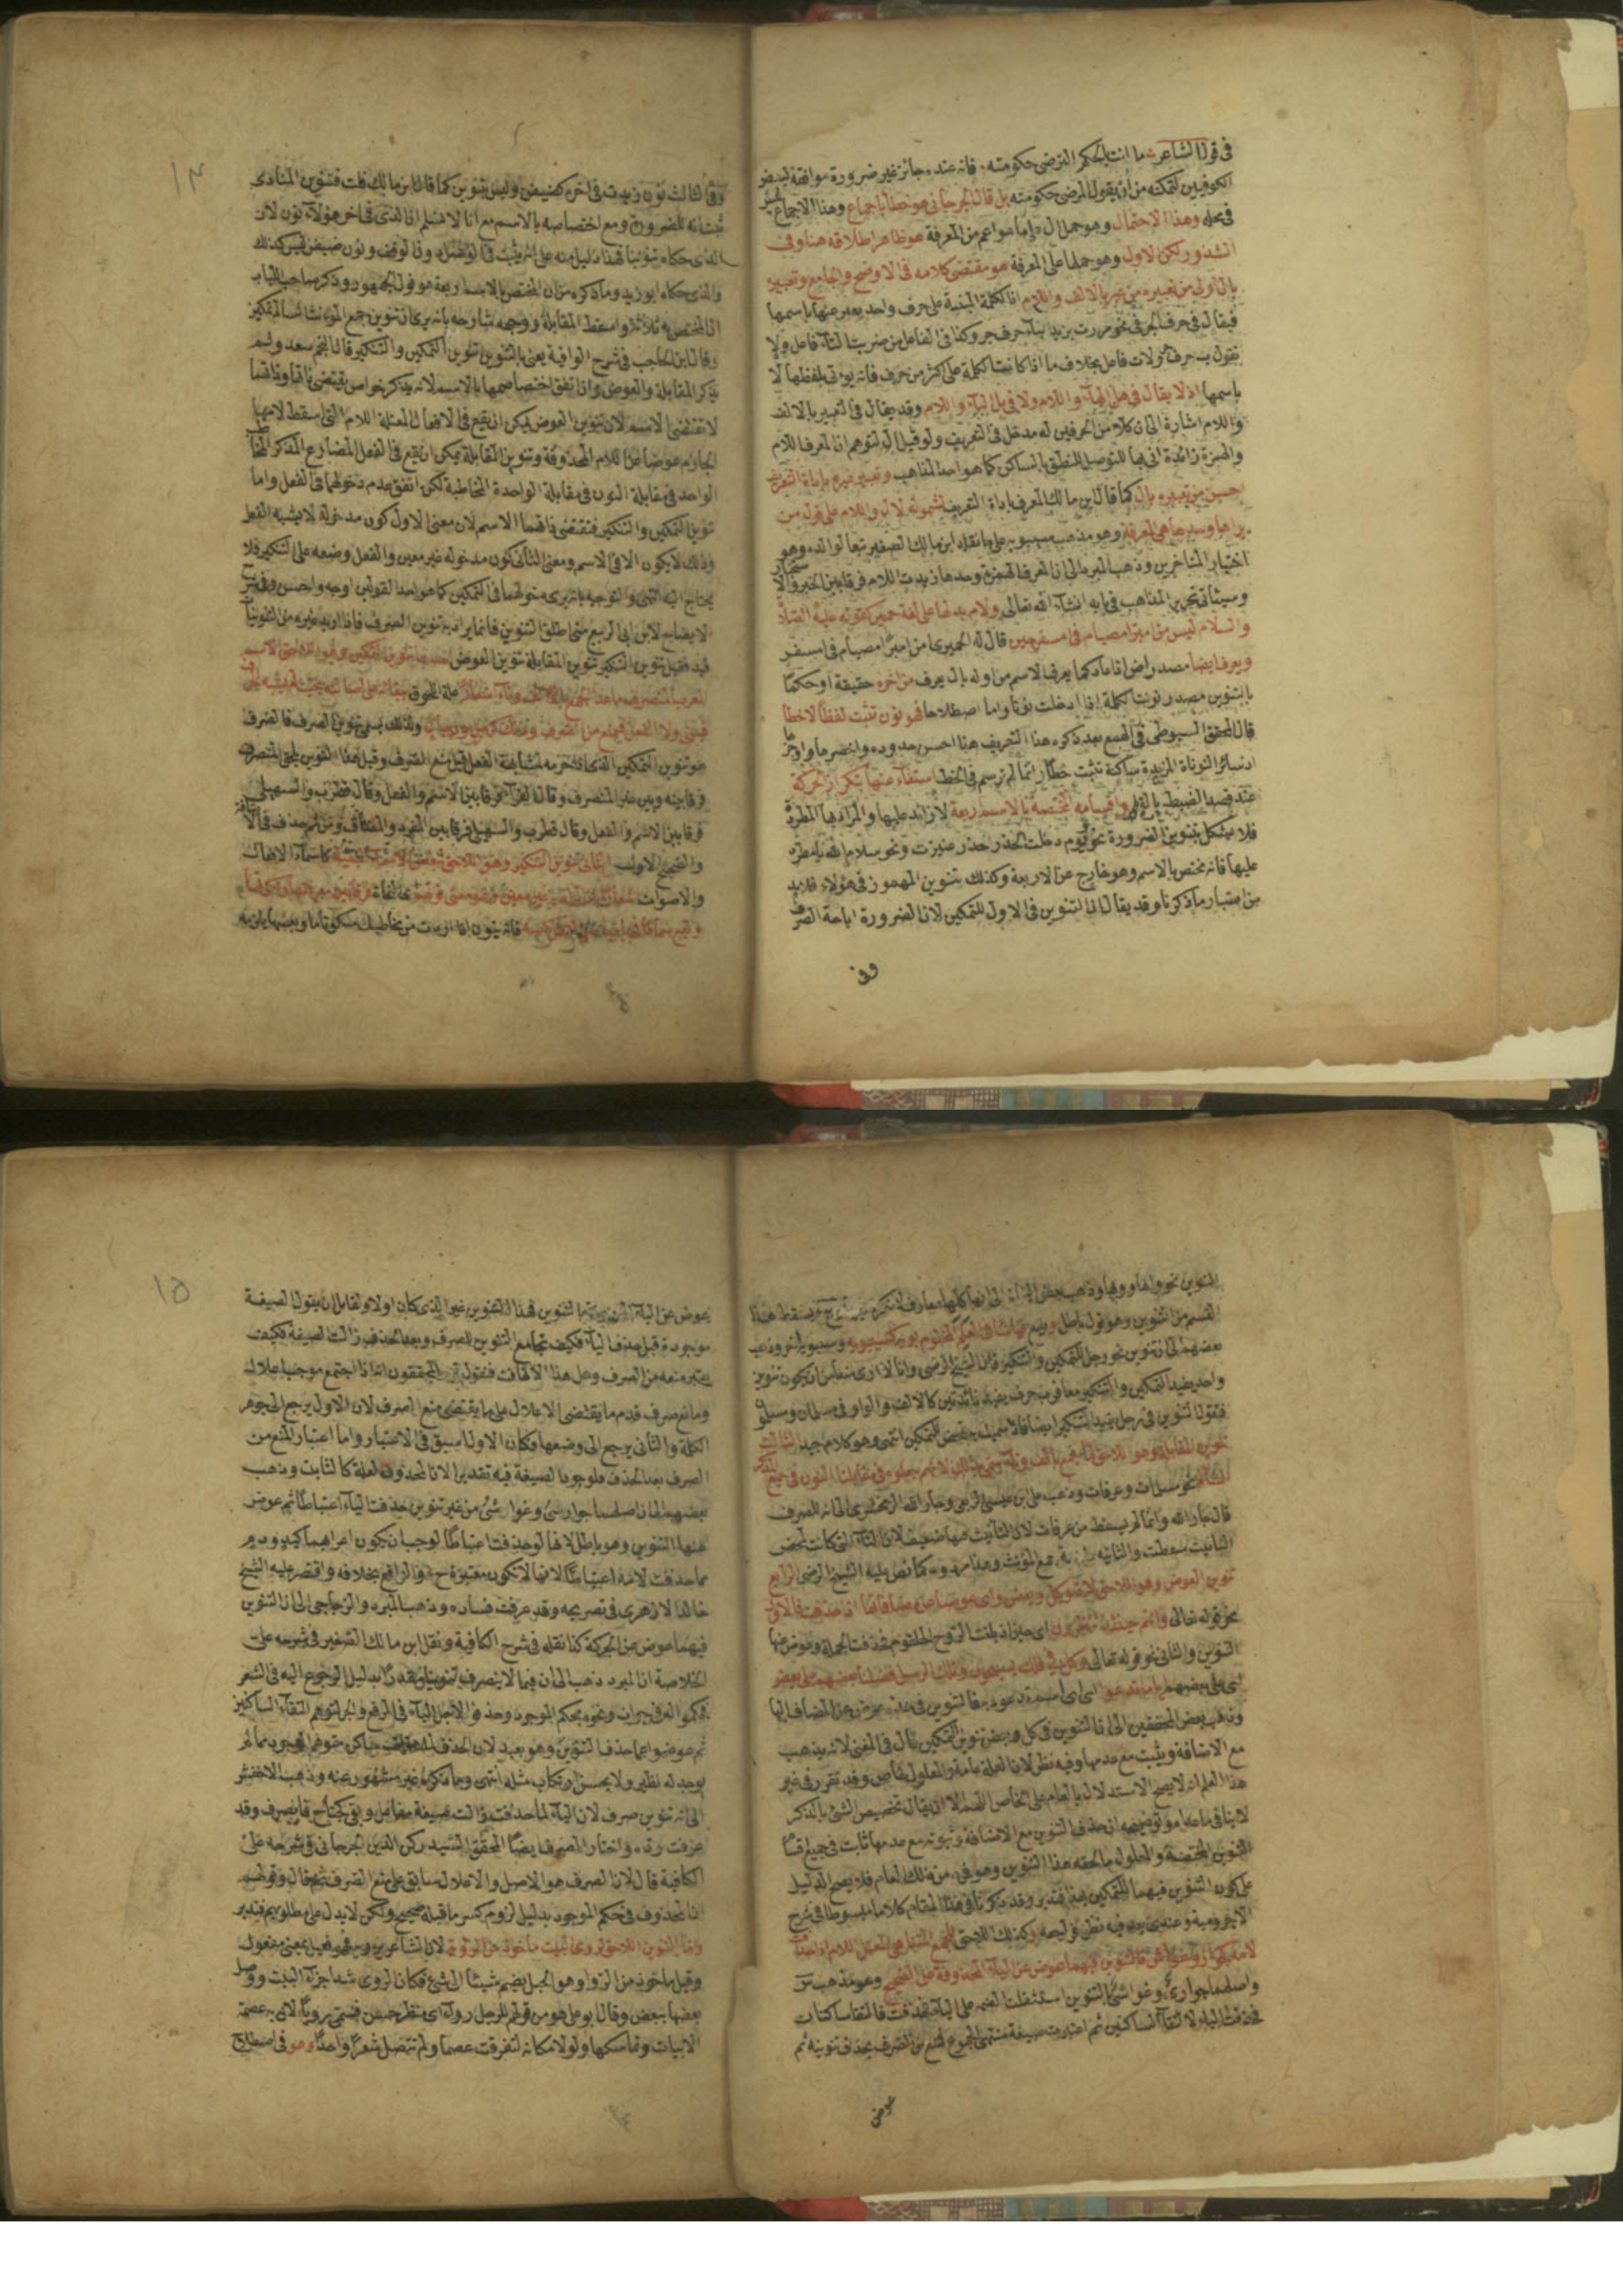 في قول الشاعر ما انت بالحكم الترضى حكومته فانه عنده جائز غير ضرورة موافقة لبعض
الكوفيين لتمكنه من ان يقول المرضى حكومته بل قال الجرجاني هو خطأ باجماع وهذا الاجماع ليس
في محله وهذا الاحتمال وهو حمل ال على ما هو اعم من المعرفة هو ظاهر اطلاقه هنا وفي
الشذور لكن الاول وهو حملها على المعرفة هو مقتضى كلامه في الاوضح والجامع وتعبيره
بال اولى من تعبير من عبر بالالف واللام اذ الكلمة المبنية على حرف واحد يعبر عنها باسمها
فيقال في حرف الجر في نحو مررت بزيد الباء حرف جر وكذا في الفاعل من ضربت التاء فاعل ولا
تقول ت فاعل بخلاف ما اذا كانت الكلمة على اكثر من حرف فانه يؤتى بلفظها لا
باسمها اذ لا يقال في هل الهاء واللام ولا في بل الباء واللام وقد يقال في التعبير بالالف
واللام اشارة الى ان كلا من الحرفين له مدخل في التعريف ولو قيل ال لتوهم ان المعرف اللام
والهمزة زائدة اتى بها للتوصل للنطق بالساكن كما هو احد المذاهب وتعبير غيره باداة التعريف
احسن من تعبيره بال كما قال ابن مالك المعرف باداة التعريف لشموله لال واللام على قول من
يراها وحدها هي المعرفة وهو مذهب سيبويه على ما نقله ابن مالك الصغير تبعا لوالده وهو
اختيار المتأخرين وذهب المبرد الى ان المعرف الهمزة وحدها زيدت اللام فرقا بين الخبر والاستخبار
وسيأتي تحرير المذاهب في بابه انشاء الله تعالى ولام بدلها على لغة حمير كقوله عليه الصلاة
والسلام ليس من امبر امصيام في امسفر حين قال له الحميري امن امبر امصيام في امسفر
ويعرف ايضا مصدر اضافة كما يعرف الاسم من اوله بال يعرف من اخره حقيقة او حكما
بالتنوين مصدر نونت الكلمة اذا ادخلت نونا واما اصطلاحا فهو نون تثبت لفظا لا خطا
قال المحقق السيوطي في الهمع بعد ذكره هذا التعريف هذا احسن حدوده واخصرها واوجزها
اذ سائر النونات المزيدة ساكنة تثبت خطا وانما لم ترسم في الخط استغناء عنها بتكرار الحركة
عند قصد الضبط بالقلم واقسامه المختصة بالاسم اربعة لا زائد عليها والمراد بها المطردة
فلا يشكل بتنوين الضرورة نحو ويوم دخلت الخدر خدر عنيزة ونحو سلام الله يا مطر
عليها فانه مختص بالاسم وهو خارج عن الاربعة وكذلك تنوين المهموز في هؤلاء فلا بد
من اعتبار ما ذكرنا وقد يقال ان التنوين في الاول للتمكين لان الضرورة اباحة الصرف
وفي
١٣
وفي الثالث نون زيدت في اخره كضيفن وليس بتنوين كما قال ابن مالك قلت فتنوين المنادى
للضرورة ومع اختصاصه بالاسم مع انا لا نسلم ان الذي في اخر هؤلاء نون لان
الذي حكاه تنوينا فهذا دليل منه على انه يثبت في الوصل دون الوقف ونون ضيفن ليس كذلك
والذي حكاه ابو زيد وما ذكره من ان المختص بالاسم اربعة هو قول الجمهور وذكر صاحب اللباب
ان المختص به ثلاثة واسقط المقابلة ووجهه شارحه بانه يرى ان تنوين جمع المؤنث السالم للتمكين
وقال ابن الحاجب في شرح الوافية يعني بالتنوين تنوين التمكين والتنكير قال النجم سعد ولم
يذكر المقابلة والعوض وان اتفق اختصاصهما بالاسم لانه يذكر خواص يقتضي ذاتها
لا تقتضي الاسم لان تنوين العوض يمكن ان يقع في الافعال المعتلة اللام التي اسقط لامها
الجازم عوضا عن اللام المحذوفة وتنوين المقابلة يمكن ان يقع في الفعل المضارع المذكر المخاطب
الواحد في مقابلة النون في مقابلة الواحدة المخاطبة لكن اتفق عدم دخولهما في الفعل واما
تنوين التمكين والتنكير فتقتضي ذاتهما الاسم لان معنى الاول كون مدخوله لا يشبه الفعل
وذلك لا يكون الا في الاسم ومعنى الثاني كون مدخوله غير معين والفعل وضعه على التنكير فلا
يحتاج اليه انتهى والتوجيه بانه يرى دخولهما في التمكين كما هو احد القولين اوجه واحسن وفي
الايضاح لابن ابي الربيع متى اطلق التنوين فانما يراد به تنوين الصرف فاذا اريد غيره من التنوينات
قيد فقيل تنوين التنكير تنوين المقابلة تنوين العوض احدها تنوين التمكين وهو اللاحق الاسم
فيبنى ولا الفعل فيمنع من الصرف وذلك كزيد ورجل ولذلك يسمى تنوين الصرف فالصرف
هو تنوين التمكين الذي حرمه لمشابهة الفعل قيل منع الصرف وقيل هذا التنوين يلحق المنصرف
فرقا بينه وبين غير المنصرف وقال الفراء فرقا بين الاسم والفعل وقال قطرب والسهيلي
فرقا بين الاسم والفعل وقال قطرب والسهيلي فرقا بين المفرد والمضاف ومن ثم حذف في الاضافة
والصحيح الاول الثاني تنوين التنكير وهو اللاحق لبعض الاسماء المبنية كاسماء الافعال
والاصوات
فانه ينون اذا اردت من مخاطبك سكوتا ما وبعضها يلزمه
التنوين نحو واها وويها وذهب بعض النحاة الى انها كلها معارف
القسم من التنوين وهو قول باطل
بعضهم الى ان تنوين نحو رجل للتمكين والتنكير قال الشيخ الرضي وانا لا ارى منعا من ان يكون تنوين
واحد يفيد التمكين والتنكير معا فرب حرف يفيد فائدتين كالالف والواو في مسلمان ومسلمون
فنقول التنوين في رجل يفيد التنكير ايضا فاذا سميت به تمحض للتمكين انتهى وهو كلام جيد الثالث
تنوين المقابلة وهو اللاحق لما جمع بالف وتاء
نحو مسلمات وعرفات وذهب علي بن عيسى الربعي وجار الله الزمخشري الى انه للصرف
قال جار الله وانما لم يسقط من عرفات لان التأنيث فيها ضعيف لان التاء التي كانت لمحض
التأنيث سقطت
تنوين العوض وهو اللاحق لاذ وكل وبعض واي عوضا عن مضافاتها اذا حذفت فالاول
نحو قوله تعالى وانتم حينئذ تنظرون اي حين اذ بلغت الروح الحلقوم فحذفت الجملة وعوض عنها
التنوين والثاني نحو قوله تعالى وكل في فلك يسبحون وتلك الرسل فضلنا بعضهم على بعض
وذهب بعض المحققين الى ان التنوين في كل وبعض تنوين التمكين قال في المغني لانه يذهب
مع الاضافة ويثبت مع عدمها وفيه نظر لان العلة عامة والمعلول خاص وقد تقرر في غير
هذا العلم انه لا يصح الاستدلال بالعام على الخاص اللهم الا ان يقال تخصيص الشيء بالذكر
لا ينافي ما عداه وتوضيحه ان حذف التنوين مع الاضافة وثبوته مع عدمها ثابت في جميع اقسام
التنوين المختصة والمعلول ما لحقه هذا التنوين وهو فرد من ذلك العام فلا يصح الدليل
على كون التنوين فيهما للتمكين بهذا فتدبر وقد ذكرنا في هذا المقام كلاما مبسوطا في شرح
الاجرومية
لامه كجوار وغواش فالتنوين فيهما عوض عن الياء المحذوفة على الصحيح وهو مذهب س
واصلهما جواري وغواشي بالتنوين استثقلت الضمة على الياء فحذفت فالتقا ساكنان
فحذفت الياء لالتقاء الساكنين ثم اعتبرت صيغة منتهى الجموع فمنع من الصرف بحذف تنوينه ثم
عوض
١٥
عوض عن الياء التنوين فهذا التنوين غير الذي كان اولا ولقائل ان يقول الصيغة
موجودة قبل حذف الياء فكيف تجامع التنوين للصرف وبعد الحذف زالت الصيغة فكيف
يعتبر منعه من الصرف وهل هذا الا تهافت فنقول المحققون اذا اجتمع موجب اعلال
ومانع صرف قدم ما يقتضي الاعلال على ما يقتضي منع الصرف لان الاول يرجع الى جوهر
الكلمة والثاني يرجع الى وضعها فكان الاول اسبق في الاعتبار واما اعتبار المنع من
الصرف بعد الحذف فلوجود الصيغة فيه تقديرا لان المحذوف لعلة كالثابت وذهب
بعضهم الى ان اصلهما جواري وغواشي من غير تنوين حذفت الياء اعتباطا ثم عوض
عنها التنوين وهو باطل لانها لو حذفت اعتباطا لوجب ان يكون اعرابهما كيد ودم
مما حذفت لامه اعتباطا لانها لا تكون معتبرة ح والواقع بخلافه واقتصر عليه الشيخ
خالد الازهري في تصريحه وقد عرفت فساده وذهب المبرد والزجاجي الى ان التنوين
فيهما عوض عن الحركة كذا نقله في شرح الكافية ونقل ابن مالك الصغير في شرحه على
الخلاصة ان المبرد ذهب الى ان فيما لا ينصرف تنوينا مقدرا بدليل الرجوع اليه في الشعر
فحكموا له في جوار ونحوه بحكم الموجود وحذفوا لاجله الياء في الرفع والجر لتوهم التقاء الساكنين
ثم عوضوا عما حذف التنوين وهو بعيد لان الحذف لملاقاة ساكن متوهم الوجود مما لم
يوجد له نظير ولا يحسن ارتكاب مثله انتهى وما ذكراه غير مشهور عنه وذهب الاخفش
الى انه تنوين صرف لان الياء لما حذفت زالت صيغة مفاعل وبقي كجناح فانصرف وقد
عرفت رده واختار الصرف ايضا المحقق السيد ركن الدين الجرجاني في شرحه على
الكافية قال لان الصرف هو الاصل والاعلال سابق على منع الصرف ثم قال وقولهم
ان المحذوف في حكم الموجود بدليل لزوم كسر ما قبله صحيح ولكن لا يدل على مطلوبهم فتدبر
واما التنوين اللاحق لروي البيت مأخوذ من الروية لان الشاعر يرويه فهو فعيل بمعنى مفعول
وقيل مأخوذ من الرواء وهو الحبل يضم شيئا الى شيء فكان الروي شد اجزاء البيت ووصل
بعضها ببعض وقال ابو علي هو من قولهم للرجل رواء اي منظر حسن فسمي رويا لان به عصمة
الابيات وتماسكها ولولا مكانه لتفرقت عصبا ولم تتصل شعرا واحدا وهو في اصطلاح